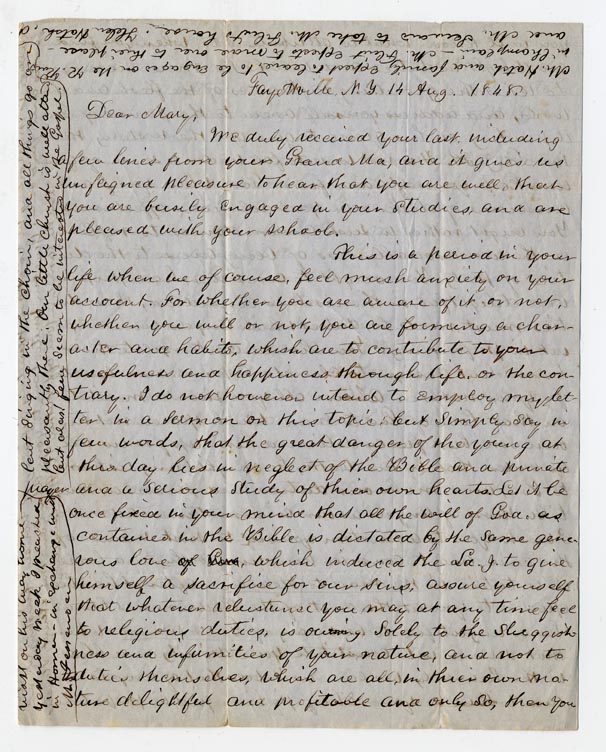 Fayettville, N.Y. 14 Aug. 1848.
Dear Mary,
We duly received your last, including
few lines from your Grand Ma, and it gives us
unfeigned pleasure to hear that you are well, that
you are busily engaged in your studies, and are
pleased with your school.
This is a period in your
life when we of course, feel mush anxiety on your
account. For whether you are aware of it or not,
whether you will or not, you are forming a char-
acter and habits, which are to contribute to your
usefulness and happiness through life, or the con-
trary. I do not however intend to employ my let-
ter in a sermon on this topic, but simply say in
few words, that the great danger of the young at
this day lies in neglect of the Bible and private
prayer and a serious study of thier own hearts. Let it be
once fixed in your mind that all the will of God, as
contained in the Bible is dictated by the same gene
rous love which induced the Ld. J. to give
himself a sacrifice for our sins, assure yourself
that whatever reluctance you may at any time feel
to religious duties, is owing solely to the sluggish-
ness and infirmities of your nature, and not to
duties themselves, which are all, in thier own na-
ture delightful and profitable and only so, then you
Mr. Hatch and family expect to leave to be engaged on the R
in Champlain – Mr. Flint expects to move over to their place –
and Mr. to take Mr. Flint's house. Helen Hatch,
lent singing in the choir, and all things go
pleasantly there. Our little church is well atte
but alas! few seem to be interested in the Gospel.
visit on his way home
yesterday week I preached
in Homer – in exchange with
Mr. Fessenden